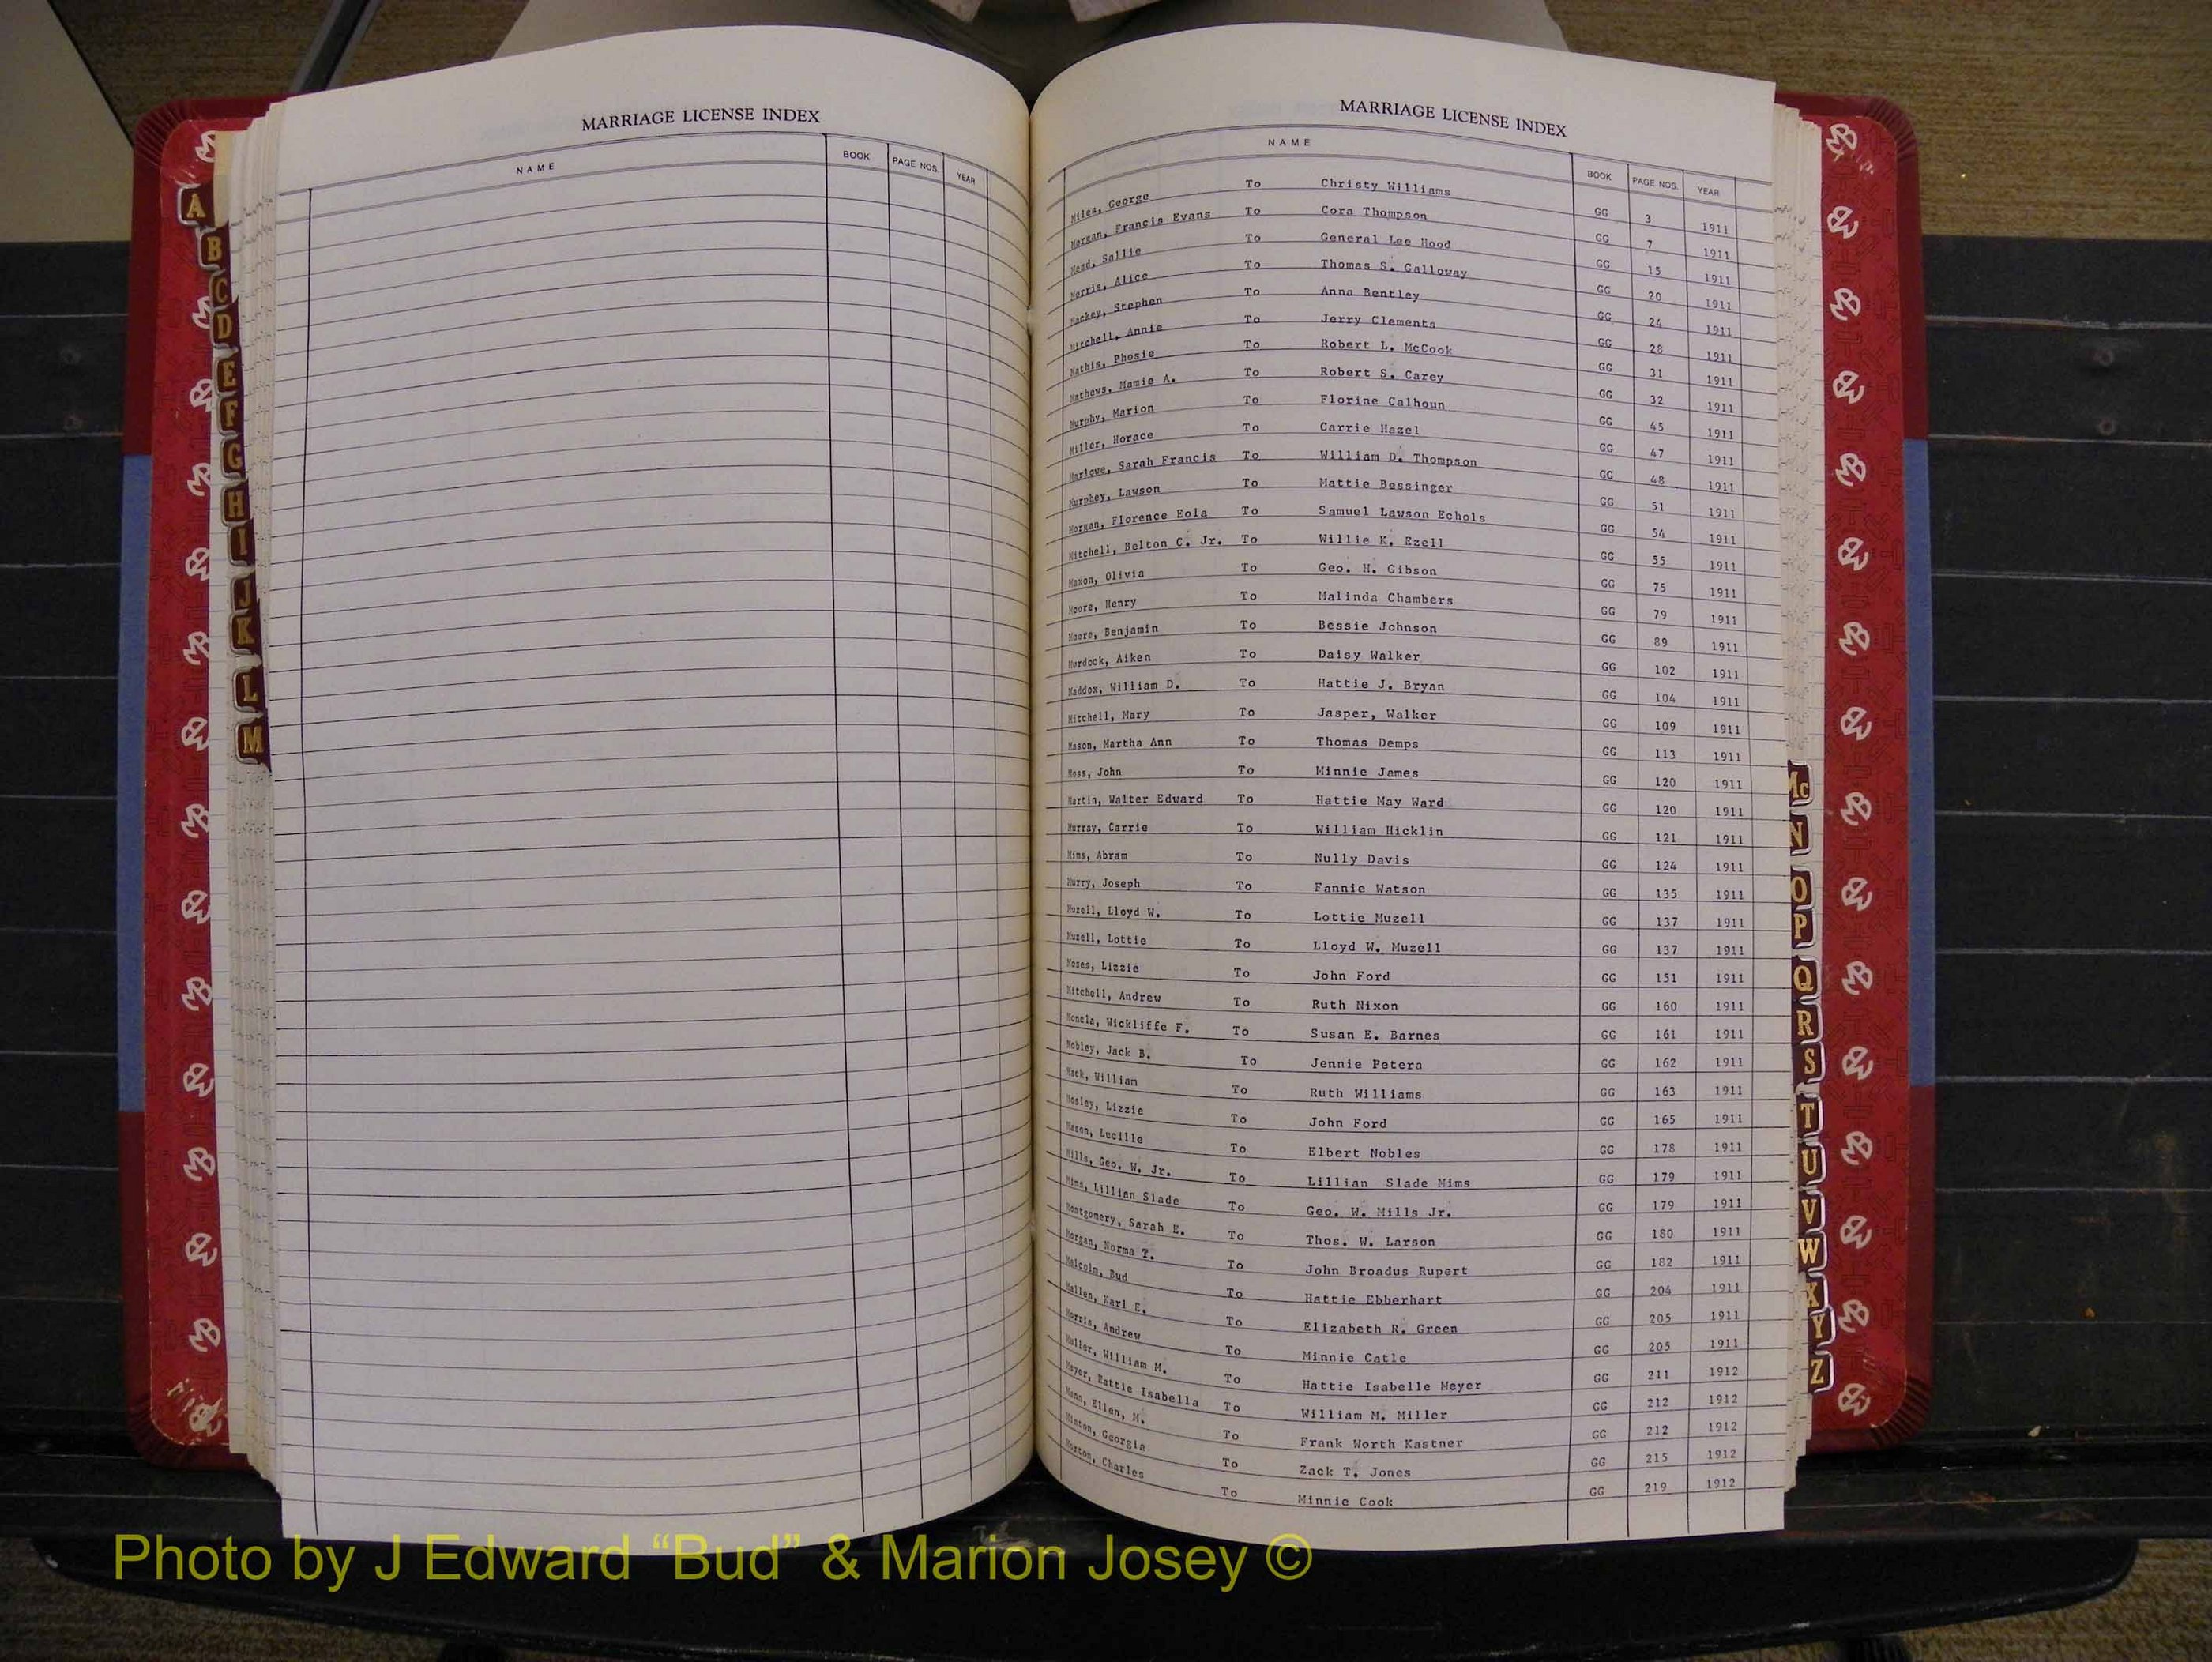 MARRIAGE LICENSE INDEX
NAME BOOK PAGE NOS. YEAR
MARRIAGE LICENSE INDEX
NAME BOOK PAGE NOS. YEAR
Miles, George To Christy Williams GG 3 1911
Morgan, Francis Evans To Cora Thompson GG 7 1911
Mead, Sallie To General Lee Hood GG 15 1911
Morris, Alice To Thomas S. Galloway GG 20 1911
Mackey, Stephen To Anna Bentley GG 24 1911
Mitchell, Annie To Jerry Clements GG 28 1911
Mathis, Phosie To Robert L. McCook GG 31 1911
Mathews, Mamie A. To Robert S. Carey GG 32 1911
Murphy, Marion To Florine Calhoun GG 45 1911
Miller, Horace To Carrie Hazel GG 47 1911
Marlowe, Sarah Francis To William D. Thompson GG 48 1911
Murphey, Lawson To Mattie Bessinger GG 51 1911
Morgan, Florence Eola To Samuel Lawson Echols GG 54 1911
Mitchell, Belton C. Jr. To Willie K. Ezell GG 55 1911
Maxon, Olivia To Geo. H. Gibson GG 75 1911
Moore, Henry To Malinda Chambers GG 79 1911
Moore, Benjamin To Bessie Johnson GG 89 1911
Murdock, Aiken To Daisy Walker GG 102 1911
Maddox, William D. To Hattie J. Bryan GG 104 1911
Mitchell, Mary To Jasper, Walker GG 109 1911
Mason, Martha Ann To Thomas Demps GG 113 1911
Moss, John To Minnie James GG 120 1911
Martin, Walter Edward To Hattie May Ward GG 120 1911
Murray, Carrie To William Hicklin GG 121 1911
Mims, Abram To Nully Davis GG 124 1911
Murry, Joseph To Fannie Watson GG 135 1911
Muzell, Lloyd W. To Lottie Muzell GG 137 1911
Muzell, Lottie To Lloyd W. Muzell GG 137 1911
Moses, Lizzie To John Ford GG 151 1911
Mitchell, Andrew To Ruth Nixon GG 160 1911
Moncla, Wickliffe F. To Susan E. Barnes GG 161 1911
Mobley, Jack B. To Jennie Petera GG 162 1911
Mack, William To Ruth Williams GG 163 1911
Mosley, Lizzie To John Ford GG 165 1911
Mason, Lucille To Elbert Nobles GG 178 1911
Mills, Geo. W. Jr. To Lillian Slade Mims GG 179 1911
Mims, Lillian Slade To Geo. W. Mills Jr. GG 179 1911
Montgomery, Sarah E. To Thos. W. Larson GG 180 1911
Morgan, Norma T. To John Broadus Rupert GG 182 1911
Malcolm, Bud To Hattie Ebberhart GG 204 1911
Mallen, Karl E. To Elizabeth R. Green GG 205 1911
Morris, Andrew To Minnie Catle GG 205 1911
Muller, William M. To Hattie Isabelle Meyer GG 211 1912
Meyer, Hattie Isabella To William M. Miller GG 212 1912
Mann, Ellen, M. To Frank Worth Kastner GG 212 1912
Minton, Georgia To Zack T. Jones GG 215 1912
Morton, Charles To Minnie Cook GG 219 1912
A
B
C
D
E
F
G
H
I
J
K
L
M
Mc
N
O
P
Q
R
S
T
U
V
W
X
Y
Z
Photo by J Edward “Bud” & Marion Josey ©